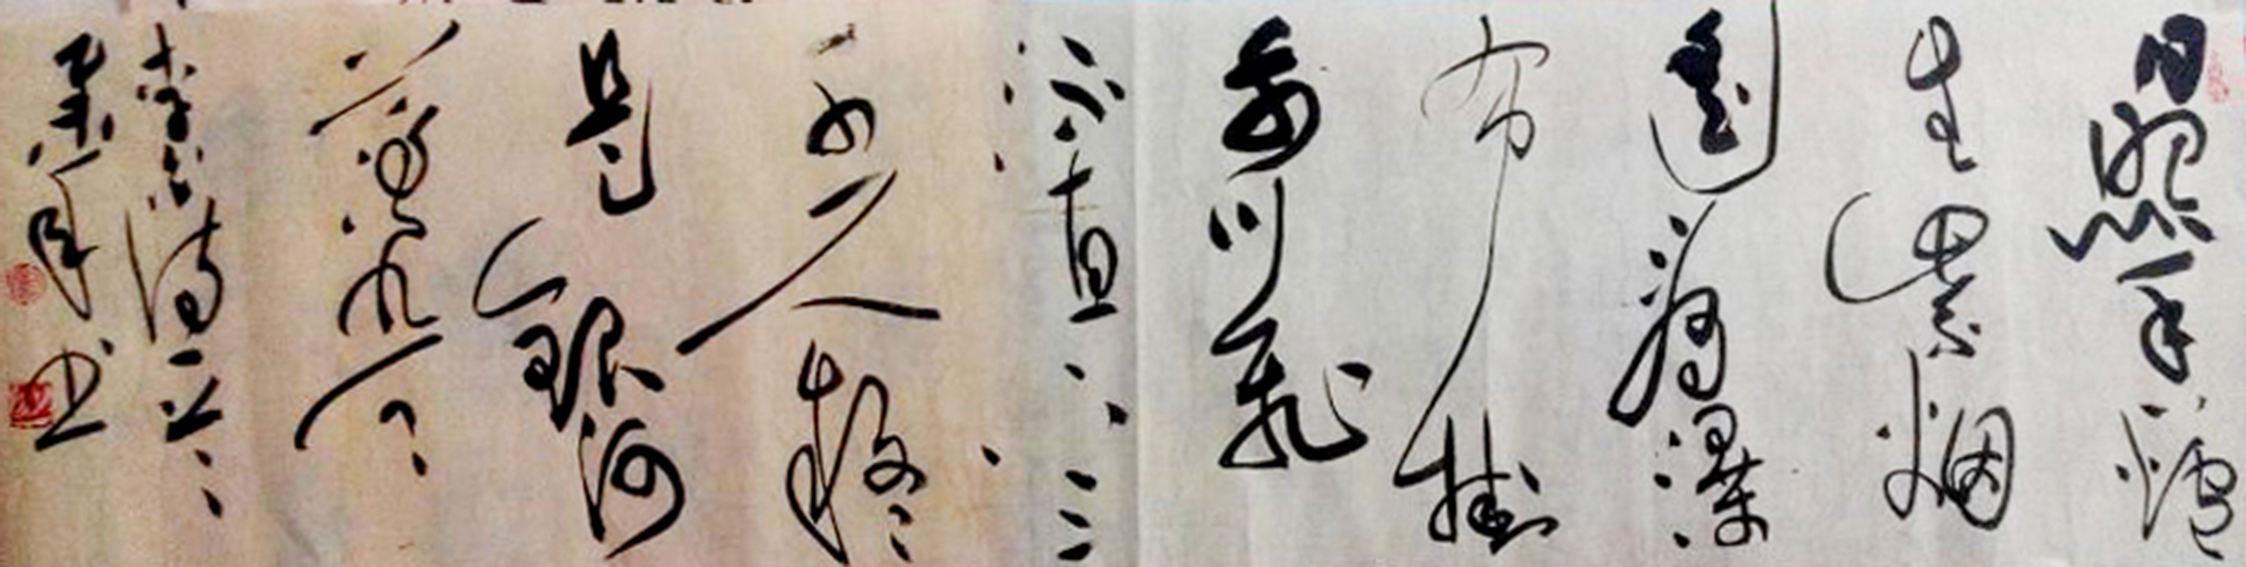 日照香炉
生紫烟
遥看瀑
布挂
前川飞
流直下三
千尺疑
是银河
落九天
李白诗一首
书